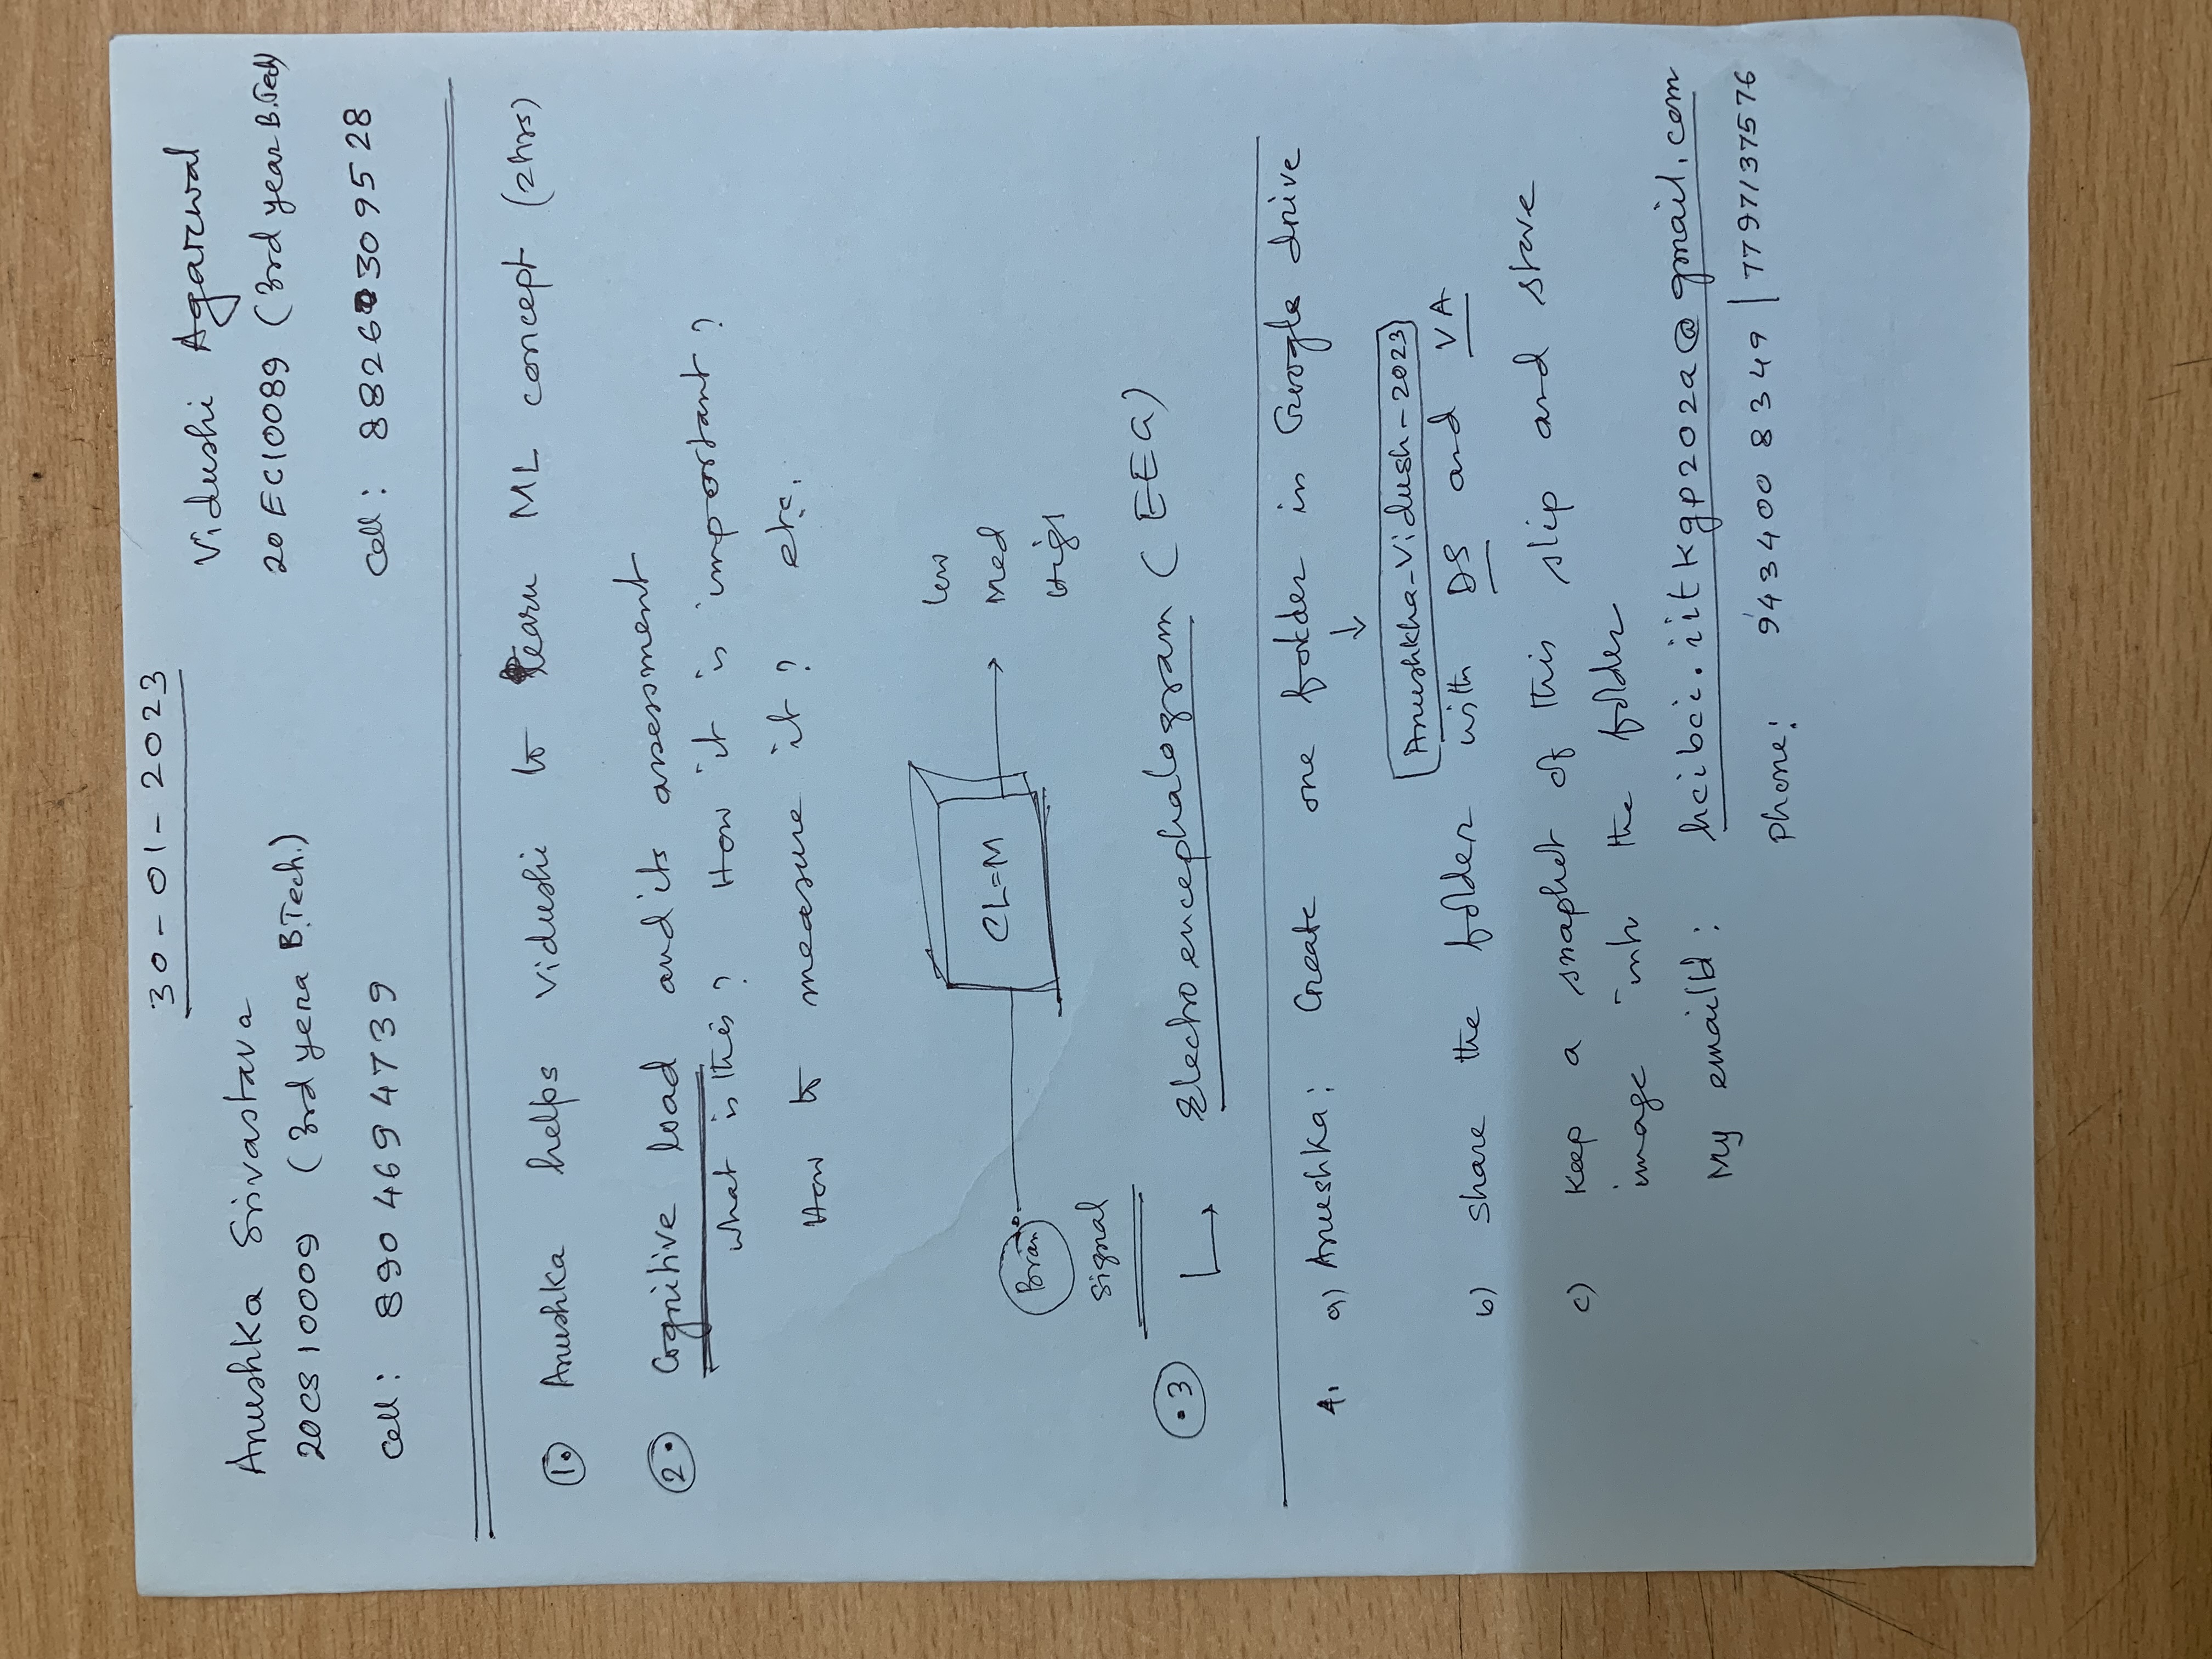 30-01-2023
Anushka Srivastava
20CS10009 (3rd yera B.Tech.)
Cell: 8904694739
Vidushi Agarwal
20EC10089 (3rd year B.Tech)
Cell: 8826309528
1. Anushka helps Vidushi to learn ML concept (2hrs)
2. Cognitive load and its assessment
What is this? How it is important?
How to measure it? etc.
Brain
Signal
CL=M
Low
Med
High
3 Electroencephalogram (EEG)
4. a) Anushka: Create one folder in Google drive
Anushkha-Vidush-2023
b) Share the folder with DS and VA
c) Keep a snaphet of this slip and store
image into the folder
My emailId: hcibci.iitkgp202a@gmail.com
Phone: 9434008349 | 7797137576